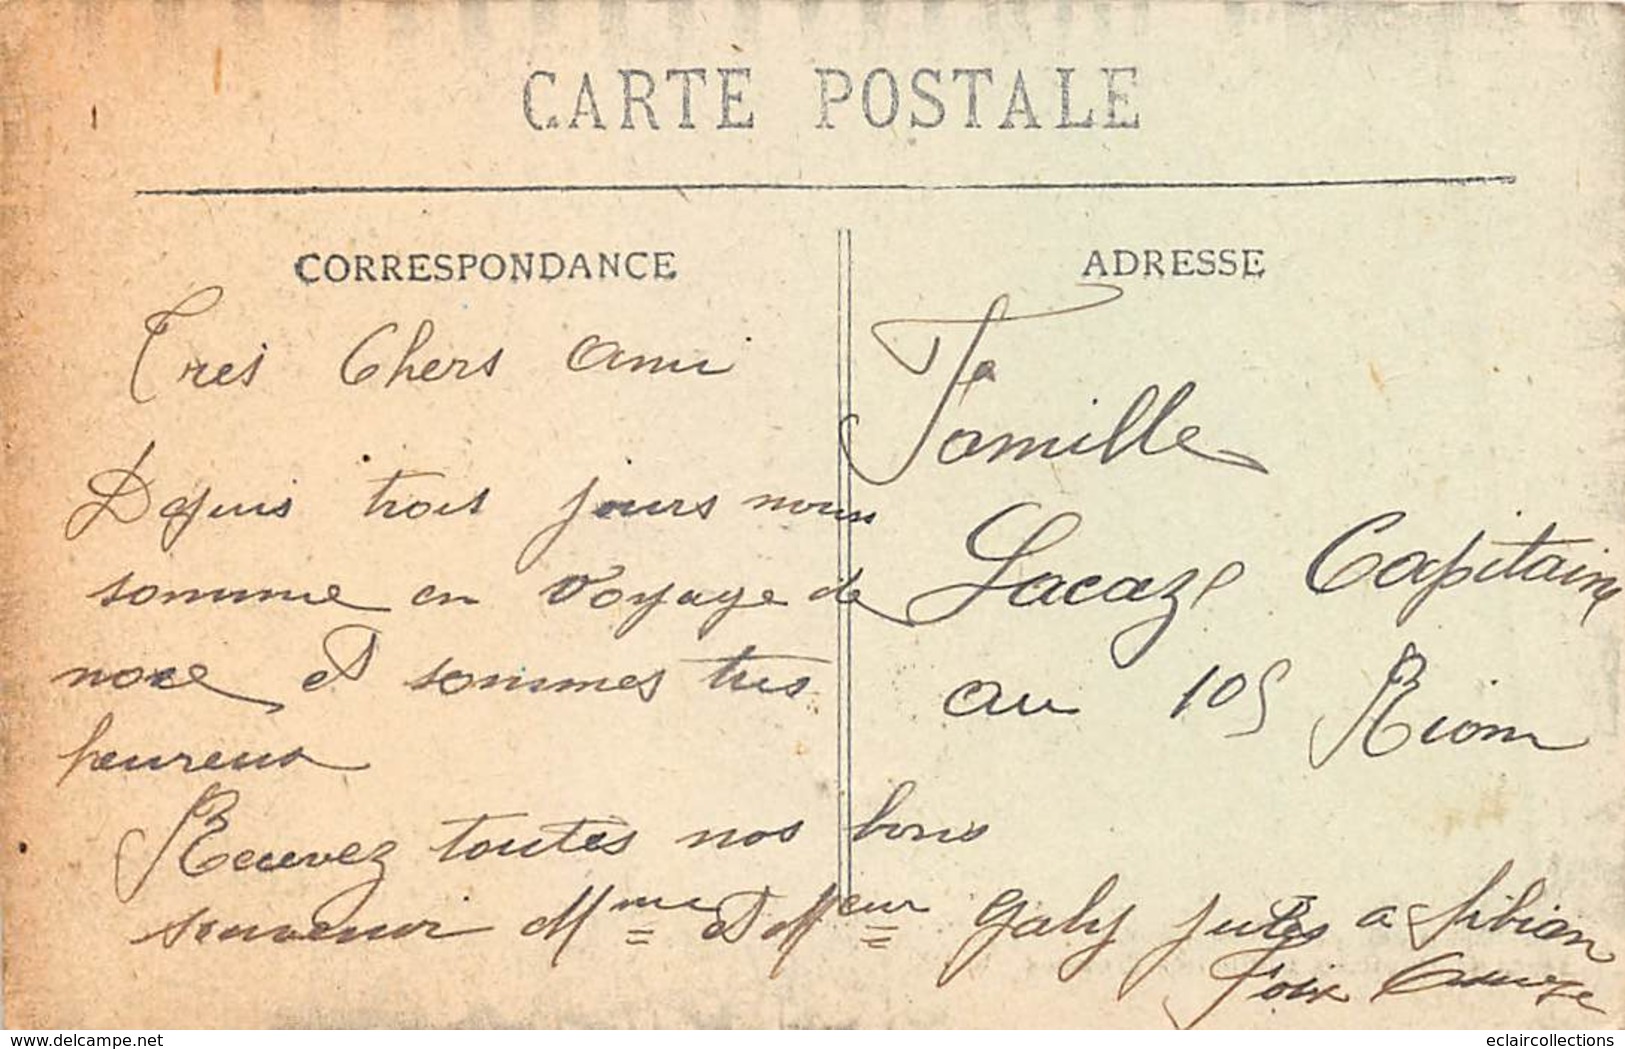 CARTE POSTALE
CORRESPONDANCE
Tres Chers Ami
Depuis trois jours nous
somme en voyage de
noce et sommes tres
heureux
Recevez toutes nos bons
souvenir Mme et Meur Galy Jules a
Foix
ADRESSE
La
Famille
Lacaze Capitaine
au 105 Riom
www.delcampe.net
eclaircollections